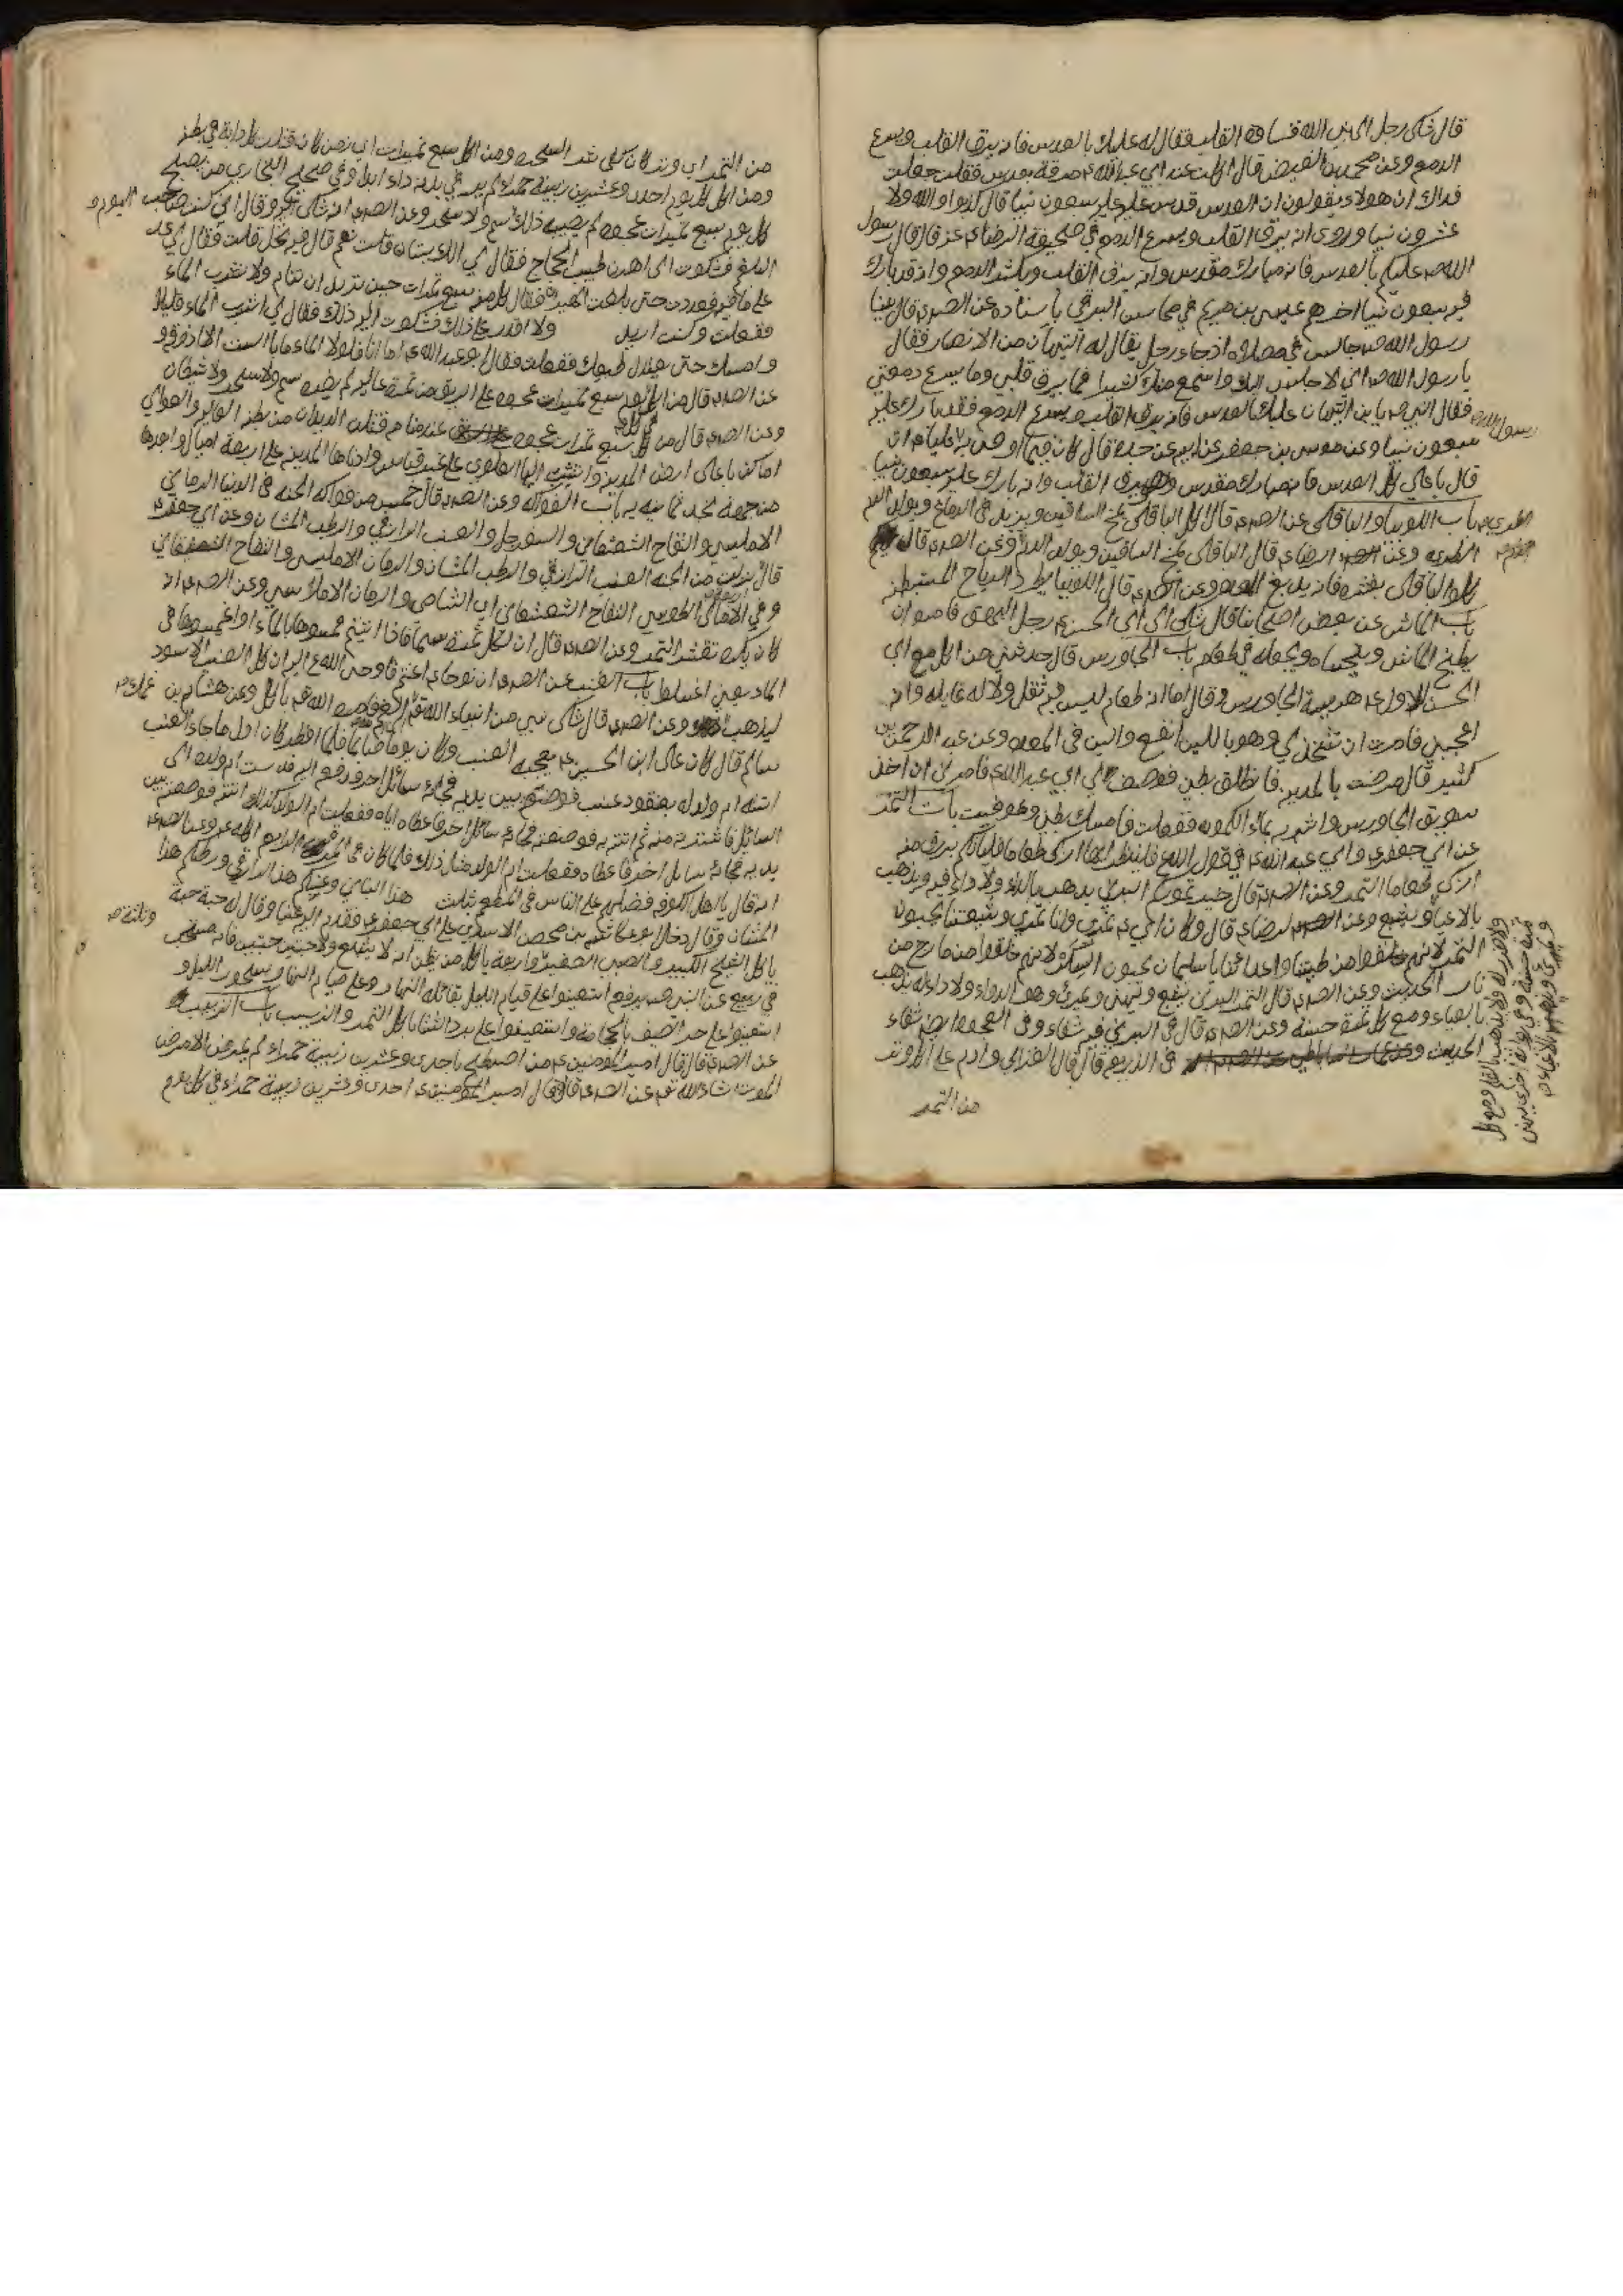 قال شكى رجل الى نبي الله قساوة القلب فقال له عليك بالعدس فانه يرق القلب ويسرع
الدمع وعن محمد بن الفيض قال اكلت عند ابي عبد الله ع مرقة بعدس فقلت جعلت
فداك ان هولاء يقولون ان العدس قدس عليه سبعون نبيا قال كذبوا والله ولا
عشرون نبيا وروى انه يرق القلب ويسرع الدمع في صحيفة الرضا ع عنه قال قال رسول
الله ص عليكم بالعدس فانه مبارك مقدس وانه يرق القلب ويكثر الدمع وانه قد بارك
فيه سبعون نبيا اخرهم عيسى بن مريم في محاسن البرقي باسناده عن الص ع قال بينا
رسول الله ص جالس في مصلاه اذ جاء رجل يقال له التيهان من الانصار فقال
يا رسول الله ص اني لاجلس اليك واسمع منك كثيرا فما يرق قلبي وما يسرع دمعتي
فقال النبي ص يابن التيهان عليك بالعدس فانه يرق القلب ويسرع الدمع فقد بارك عليه
سبعون نبيا وعن موسى بن جعفر عن ابيه عن جده قال كان فيما اوصى به عليا ع ان
قال يا علي كل العدس فانه مبارك مقدس وهو يرق القلب وانه بارك عليه سبعون نبيا
باب اللوبيا والباقلى عن الص ع قال اكل الباقلى يمخ الساقين ويزيد في الدماغ ويولد الدم
الطرى وعن الرضا ع قال الباقلى يمخ الساقين ويولد الدم وعن الص ع قال
كلوا الباقلى بقشره فانه يدبغ المعده وعن الص ع قال اللوبيا يطرد الرياح المستبطنه
باب الماش عن بعض اصحابنا قال شكى الى ابى الحسن ع رجل البهق فامره ان
يطبخ الماش ويتحساه ويجعله في طعامه باب الجاورس قال حدثني من اكل مع ابى
الحسن الاول ع هريسة الجاورس وقال اما انه طعام ليس فيه ثقل ولا له غايله وانه
اعجبني فامرت ان تتخذ لي وهو باللبن انفع والين في المعده وعن عبد الرحمن بن
كثير قال مرضت بالمدينه فانطلق بطني فوصف لي ابي عبد الله ع فامرني ان اخذ
سويق الجاورس واشربه بماء الكمون ففعلت فامسك بطني وعوفيت باب التمر
عن ابي جعفر ع وابي عبد الله ع في قول الله ع فلينظر ايها ازكى طعاما فلياتكم برزق منه
ازكى طعاما التمر وعن الص ع قال خير تموركم البرني يذهب بالداء ولا داء فيه ويذهب
بالاعياء ويشبع وعن الرضا ع قال وكان ابي ع تمري وانا تمري وشيعتنا يحبون
التمر لانهم خلقوا من طينتنا واعدائنا يا سليمان يحبون السكر لانهم خلقوا من مارج من
نار الحديث وعن الص ع قال التمر البرني يشبع ويهني ويمري وهو الدواء ولا داء له يذهب
بالعياء ومع كل تمرة حسنة وعن الص ع قال في البرني فيه شفاء وفي العجوة ايض شفاء
الحديث في الذريعه قال قال الغزالي وادم على الوتر
من التمر
من التمر اي وتر كان كفى شر السحر ومن اكل سبع تميرات اي زمن كان قتلت كل دابة في بطنه
ومن اكل كل يوم احدى وعشرين زبيبة حمراء لم ير في بدنه داء ابدا وفي صحيح البخاري من يصبح
كل يوم سبع تميرات عجوه لم يصبه ذلك اليوم سم ولا سحر وعن الص ع انه شكى وقال اني كنت صاحب
البلغم فشكوت الى اهرن طبيب الحجاج فقال لي الك بستان قلت نعم قال فيه نخل قلت فقال لي عد
على ما فيه فعددت حتى بلغت الهيرون فقال كل منه سبع تمرات حين تريد ان تنام ولا تشرب الماء
ففعلت وكنت اريد ولا اقدر على ذلك فشكوت اليه ذلك فقال لي اشرب الماء قليلا
وامسك حتى يعتدل طبعك ففعلت فقال ابو عبد الله ع اما انا فلولا الماء ما باليت الا اذوقه
عن الص ع قال من اكل في يوم سبع تميرات عجوه على الريق من تمرة عاليه لم يضره سم ولا سحر ولا شيطان
وعن الص ع قال من اكل سبع تمرات عجوه عند منامه قتلن الديدان من بطنه العاليه والعوالي
اماكن باعلى ارض المدينة والنسبة اليها العلوي على غير قياس وادناها المدينه على اربعة اميال وابعدها
من جهة نجد ثمانيه باب الفواكه وعن الص ع قال خمس من فواكه الجنه في الدنيا الرمان
الامليسي والتفاح الشعشعاني والسفرجل والعنب الرازقي والرطب المشان وعن ابي جعفر ع
قال نزلت من الجنه العنب الرازقي والرطب المشان والرمان الامليسي والتفاح الشعشعاني
وفي الامالي للطوسي التفاح الشعشعاني اي الشامي والرمان الاملاسي وعن الص ع انه
كان يكره تقشر التمر وعن الص ع قال ان لكل ثمرة سما فاذا اتيتم فمسوها بالماء او اغمسوها في
الماء يعني اغسلوها باب العنب عن الص ع ان نوحا ع اغتم فاوحى الله ع اليه ان كل العنب الاسود
ليذهب وعن الص ع قال شكى نبي من انبياء الله تع الغم فامره الله تع باكل وعن هشام بن
سالم قال كان على ابن الحسين ع يعجبه العنب وكان يوما صائما فلما افطر كان اول ما جاء العنب
اتته ام ولد له بعنقود عنب فوضعته بين يديه فجاء سائل فدفع اليه فدست ام ولده الى
السائل فاشترته منه ثم اتته به فوضعته فجاء سائل اخر فاعطاه اياه ففعلت ام الولد كذلك ثم اتته فوضعته بين
يديه فجاء سايل اخر فاعطاه ففعلت ام الولد مثل ذلك فلما كان في الرابع اكله ع وعن الص ع
انه قال يا اهل الكوفه فضلتم على الناس في المطعم بثلث هذا البناني وعنبكم هذا الرازقي ورطبكم هذا
المشان وقال دخل عكاشه بن محصن الاسدي على ابي جعفر ع فقدم اليه عنبا وقال له حبة حبة
ياكل الشيخ الكبير والصبي الصغير واربعة ياكل من يظن انه لا يشبع وكله حبتين حبتين فانه مستحب
في ربيع عن النبي ص يرفع استعينوا على قيام الليل بقائلة النهار وعلى صيام النهار بسحور الليل و
استعينوا على حر الصيف بالحجامة واستعينوا على برد الشتا باكل التمر والزبيب باب الزبيب
عن الص ع قال قال امير المؤمنين ع من اصطبح باحدى وعشرين زبيبة حمراء لم يمرض الا مرض
الموت انشاء الله تع عن الص ع قال قال امير المؤمنين ع احدى وعشرين زبيبة حمراء في كل يوم